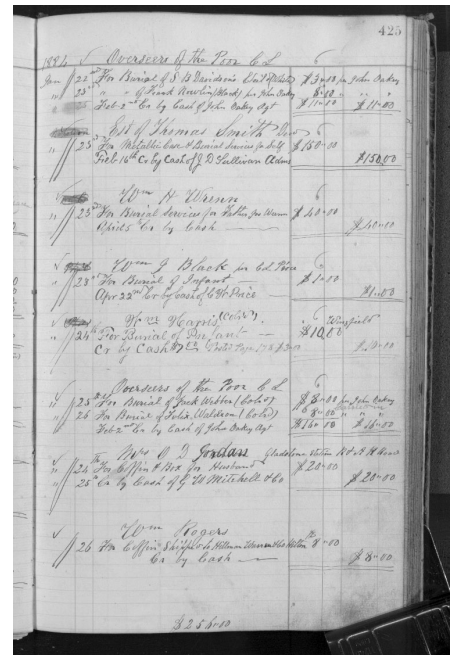 425
1884 Overseers of the Poor C L
Jan 22nd For Burial of S B Davidson $3.00 per John Oakey
" 23rd " " of Frank Nowlin (Black) per John Oakey 8.00 " " "
" Feb 2nd Cr by Cash of John Oakey Agt $11.00 $11.00
Est of Thomas Smith
" 23rd For Metallic Case & Burial Services for Self $150.00
Feb 16th Cr by Cash of J D Sullivan Adms $150.00
Wm H Wrenn
" 23rd For Burial Services for Father per Wm $40.00
April 5 Cr by Cash $40.00
Wm J Black per C W Price
" 23rd For Burial of Infant $1.00
Apr 22nd Cr by Cash of C W Price $1.00
Wm Harris (Cold)
" 24th For Burial of Infant $10.00
Cr by Cash
Overseers of the Poor C L
" 25th For Burial of Jack Webber (Cold) $8.00 per John Oakey
" 26 For Burial of Felix Waldron (Cold) 8.00 " " "
Feb 2nd Cr by Cash of John Oakey Agt $16.00 $16.00
Mrs Jordan Gladstone Station
" 24th For Coffin & Box for Husband $20.00
" 25th Cr by Cash of G W Mitchell & Co $20.00
Wm Rogers
" 26 For Coffin Shipped to 8.00
Cr by Cash $8.00
$256.00